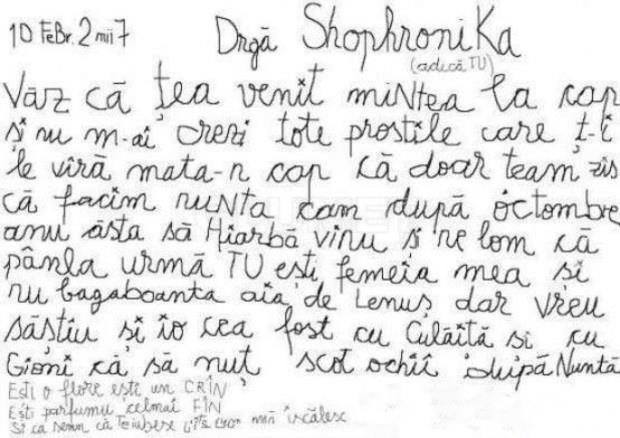 10 FeBr. 2 mii7 Drgă ShophroniKa
(adică TU)
Văz că ţea venit miNtea la cap
şi nu m-ai crezi tote prostile care ţ-i
le viră mata-n cap că doar team zis
că facim nuNta cam după octombre
anu ăsta să Hiarbă vinu şi ne lom că
pânla urmă TU eşti femeia mea şi
nu bagaboanta aia de Lenuş dar vreu
săştiu şi io cea fost cu Culăită si cu
Gioni că să nuţ scot ochii duipă Nuntă
Eşti o flore eşti un CRÎN
Eşti parfumu celmai FÎN
Şi ca semn că Te iubesc mă îscălesc